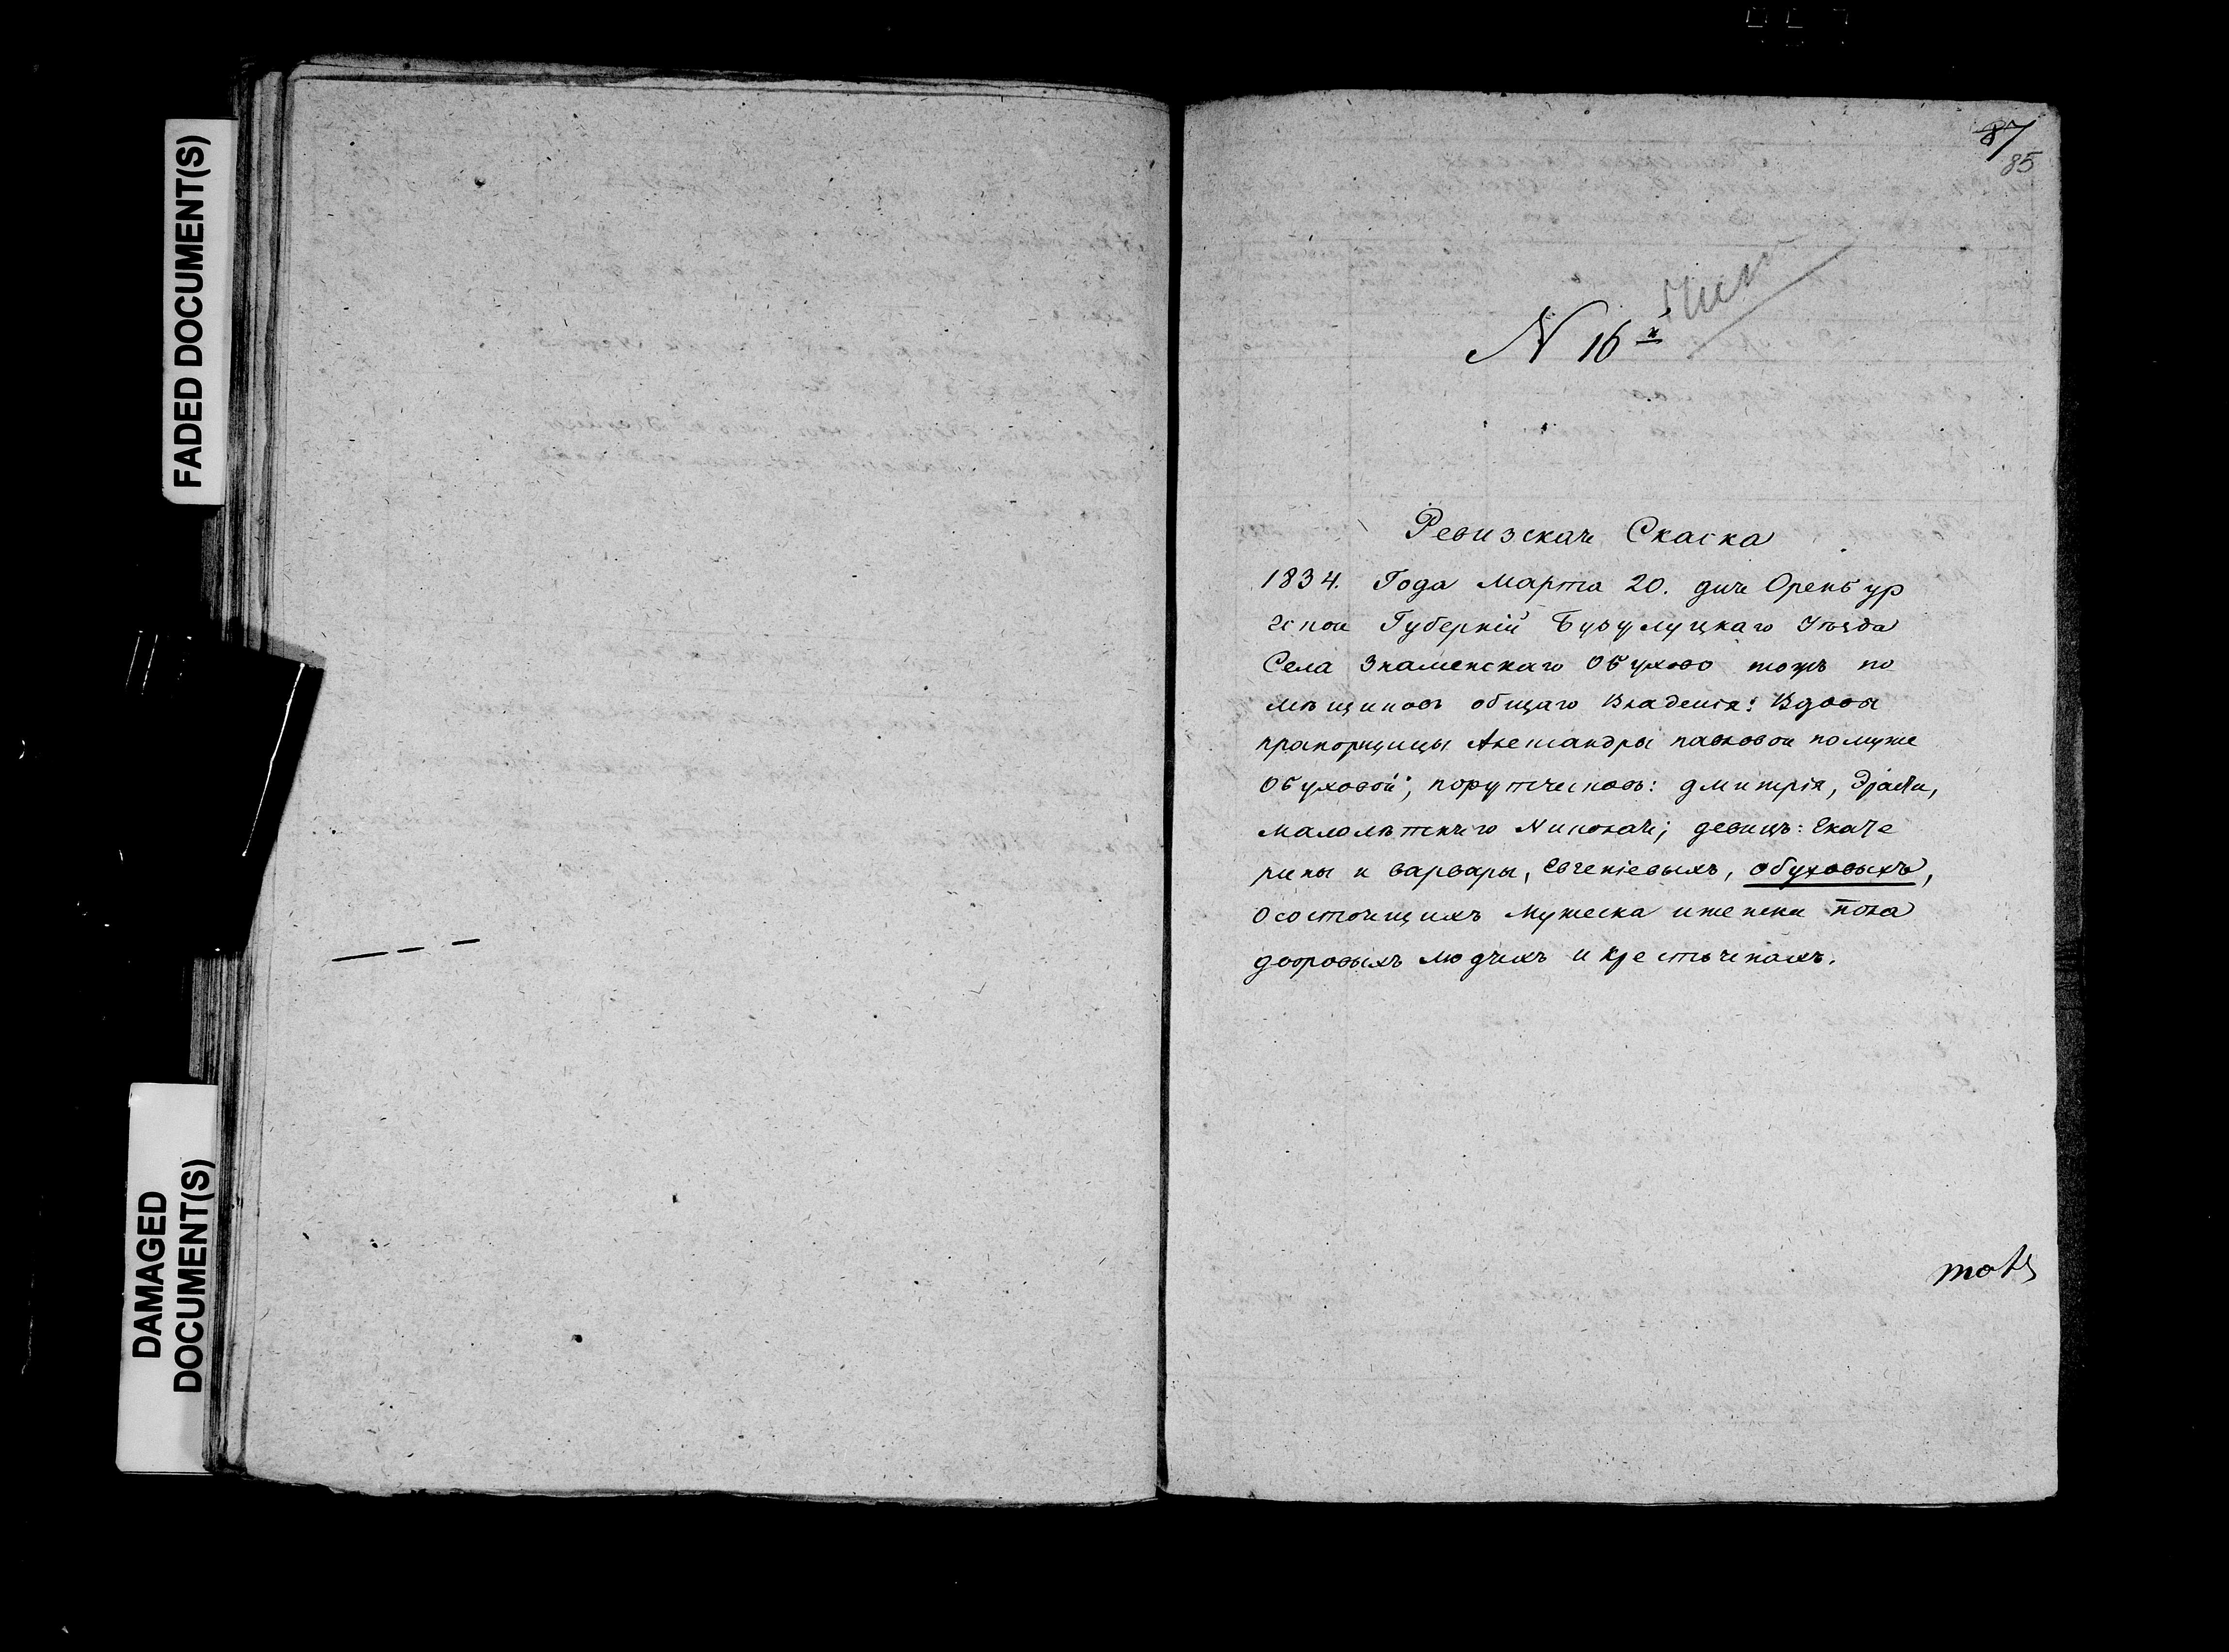 FADED DOCUMENT(S)
DAMAGED
DOCUMENT(S)
87
85
N 16й
Ревизская Скаска
1834. Года Марта 20. дня Оренбур
гской Губерніи Бузулуцкаго Уѣзда
Села Знаменскаго Обухово тожъ по
мѣщиковъ общаго Владенія: Вдовы
прапорщицы Александры павловой помуже
Обуховой, порутчиковъ: дмитрія,
малолѣтняго Николая; девицъ: Екате
рины и варвары, Евгеніевыхъ, обуховыхъ,
Осостоящихъ мужеска иженска пола
дворовыхъ людяхъ и крестьянахъ.